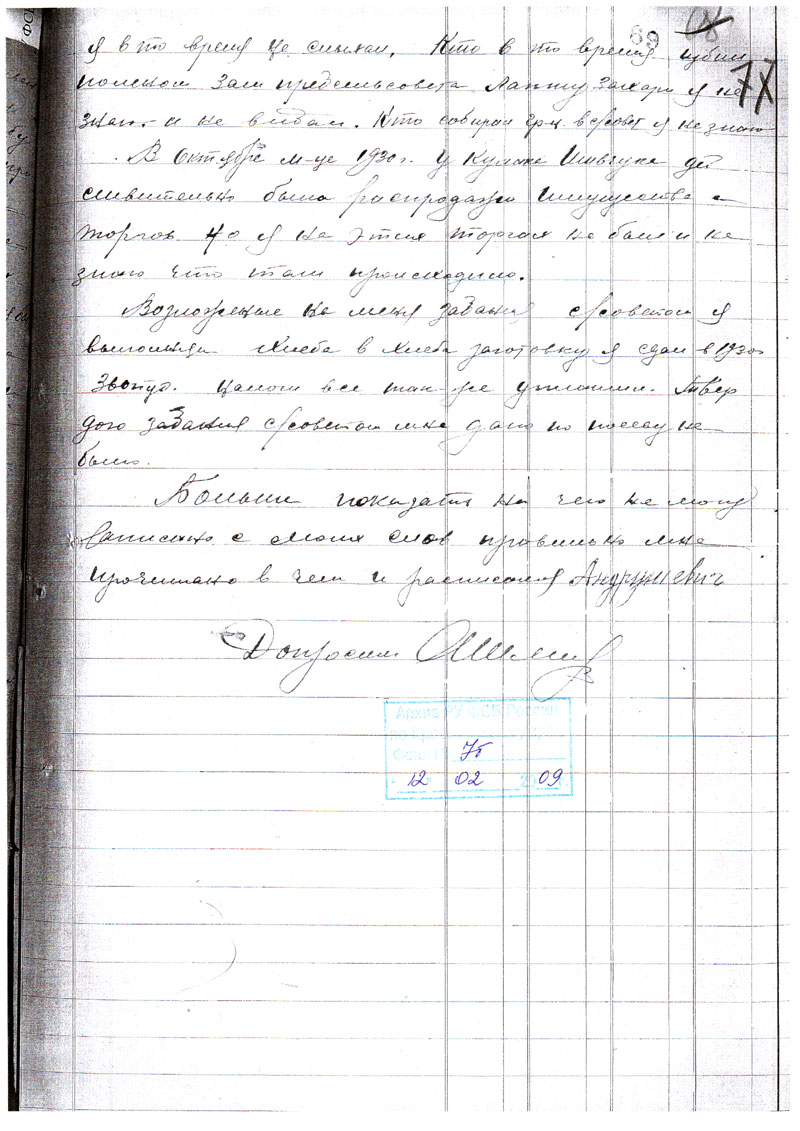 89
77
я в то время не слыхал. Кто в то время убил
поленом зам предсельсовета Лапту Захара я не
знаю и не видал. Кто собирал гр-н в с/совет я не знаю
В Октябре м-це 1930 г. у Кулака Шевчука дей
ствительно была распродажа имущества с
торгов но я на этих торгах не был и не
знаю что там происходило.
Возложеные на меня задания с/советом я
выполнял хлеба в хлебозаготовку я сдал в 1930 г
3 пуд. налоги все так-же уплатил. Твер
дого задания с/советом мне дано по посеву не
было.
Больше показать ни чего не могу
записано с моих слов правильно мне
прочитано в чем и расписался Андрушевич
Допросил
Архив РУ ФСБ России
УБ
12 02 2009
ФСБ